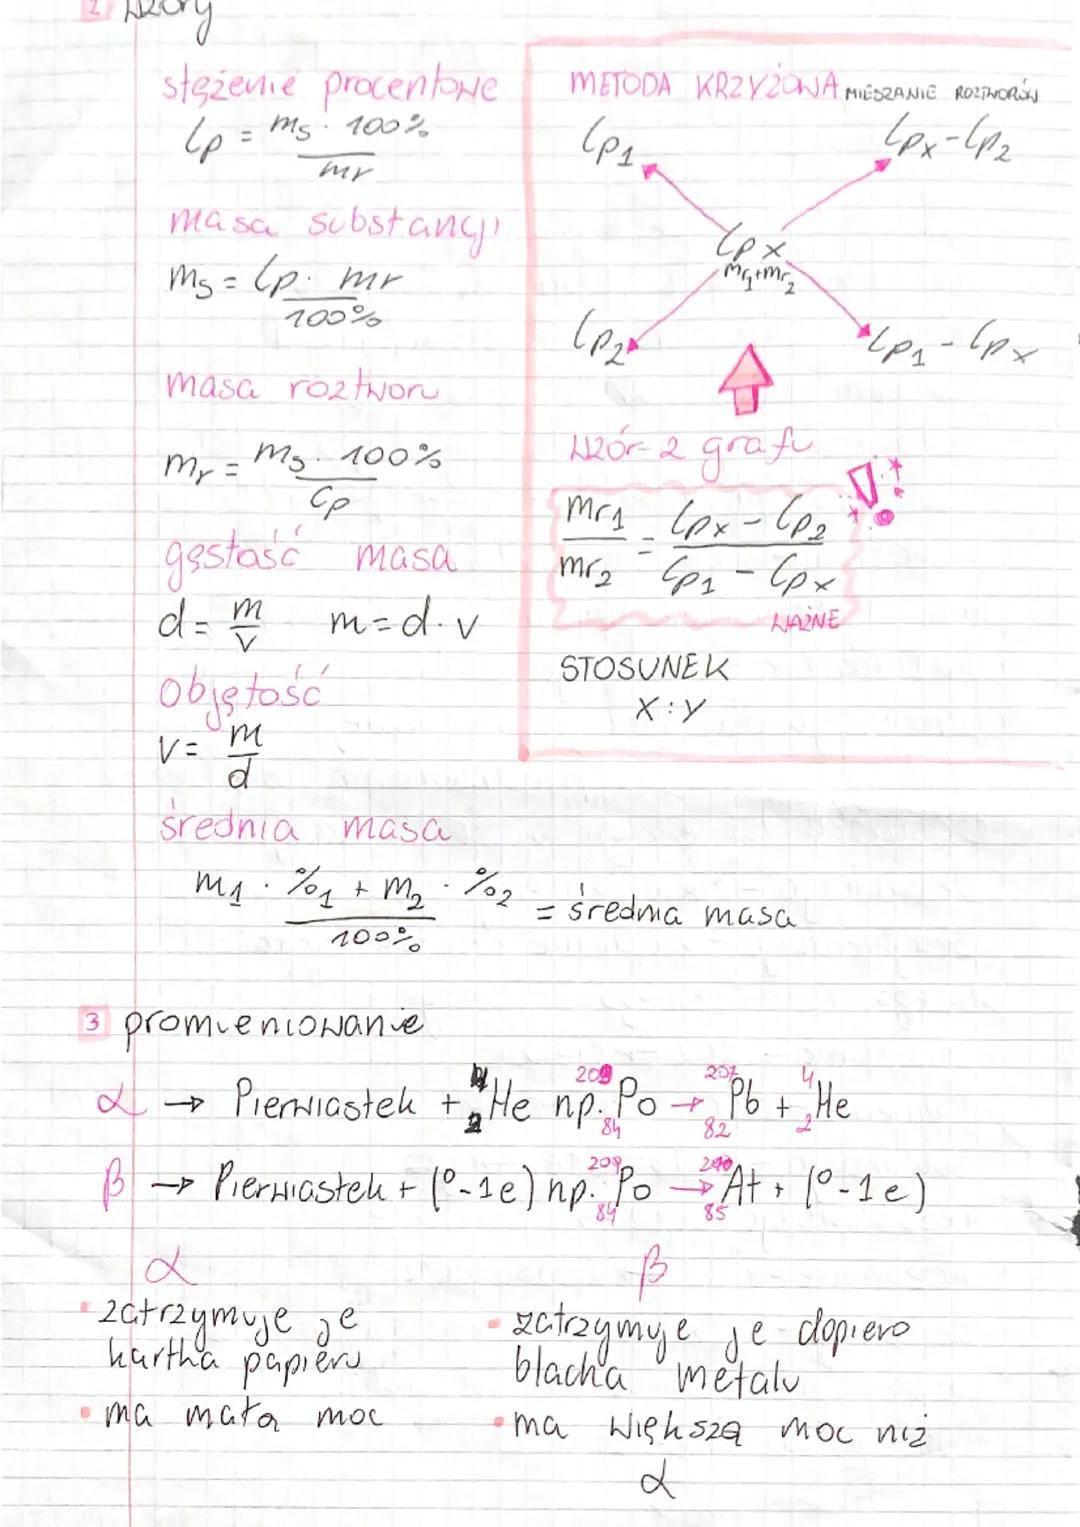 2 wzory
stężenie procentowe
Cp = ms · 100% / mr
masa substancji
ms = Cp · mr / 100%
masa roztworu
mr = ms · 100% / Cp
gęstość masa
d = m / v m = d · v
objętość
v = m / d
METODA KRZYŻOWA MIESZANIE ROZTWORÓW
Cp1 Cpx - Cp2
Cpx
mr1 + mr2
Cp2 Cp1 - Cpx
Wzór z grafu
mr1 / mr2 = Cpx - Cp2 / Cp1 - Cpx
WAŻNE
STOSUNEK
X : Y
średnia masa
m1 · %1 + m2 · %2 / 100% = średnia masa
3 promieniowanie
α → Pierwiastek + ⁴₂He np. ²⁰⁹₈₄Po → ²⁰⁷₈₂Pb + ⁴₂He
β → Pierwiastek + (⁰-1e) np. ²⁰⁹₈₄Po → ²¹⁰₈₅At + (⁰-1e)
α
• zatrzymuje je
kartka papieru
• ma małą moc
β
• zatrzymuje je dopiero
blacha metalu
• ma większą moc niż
α